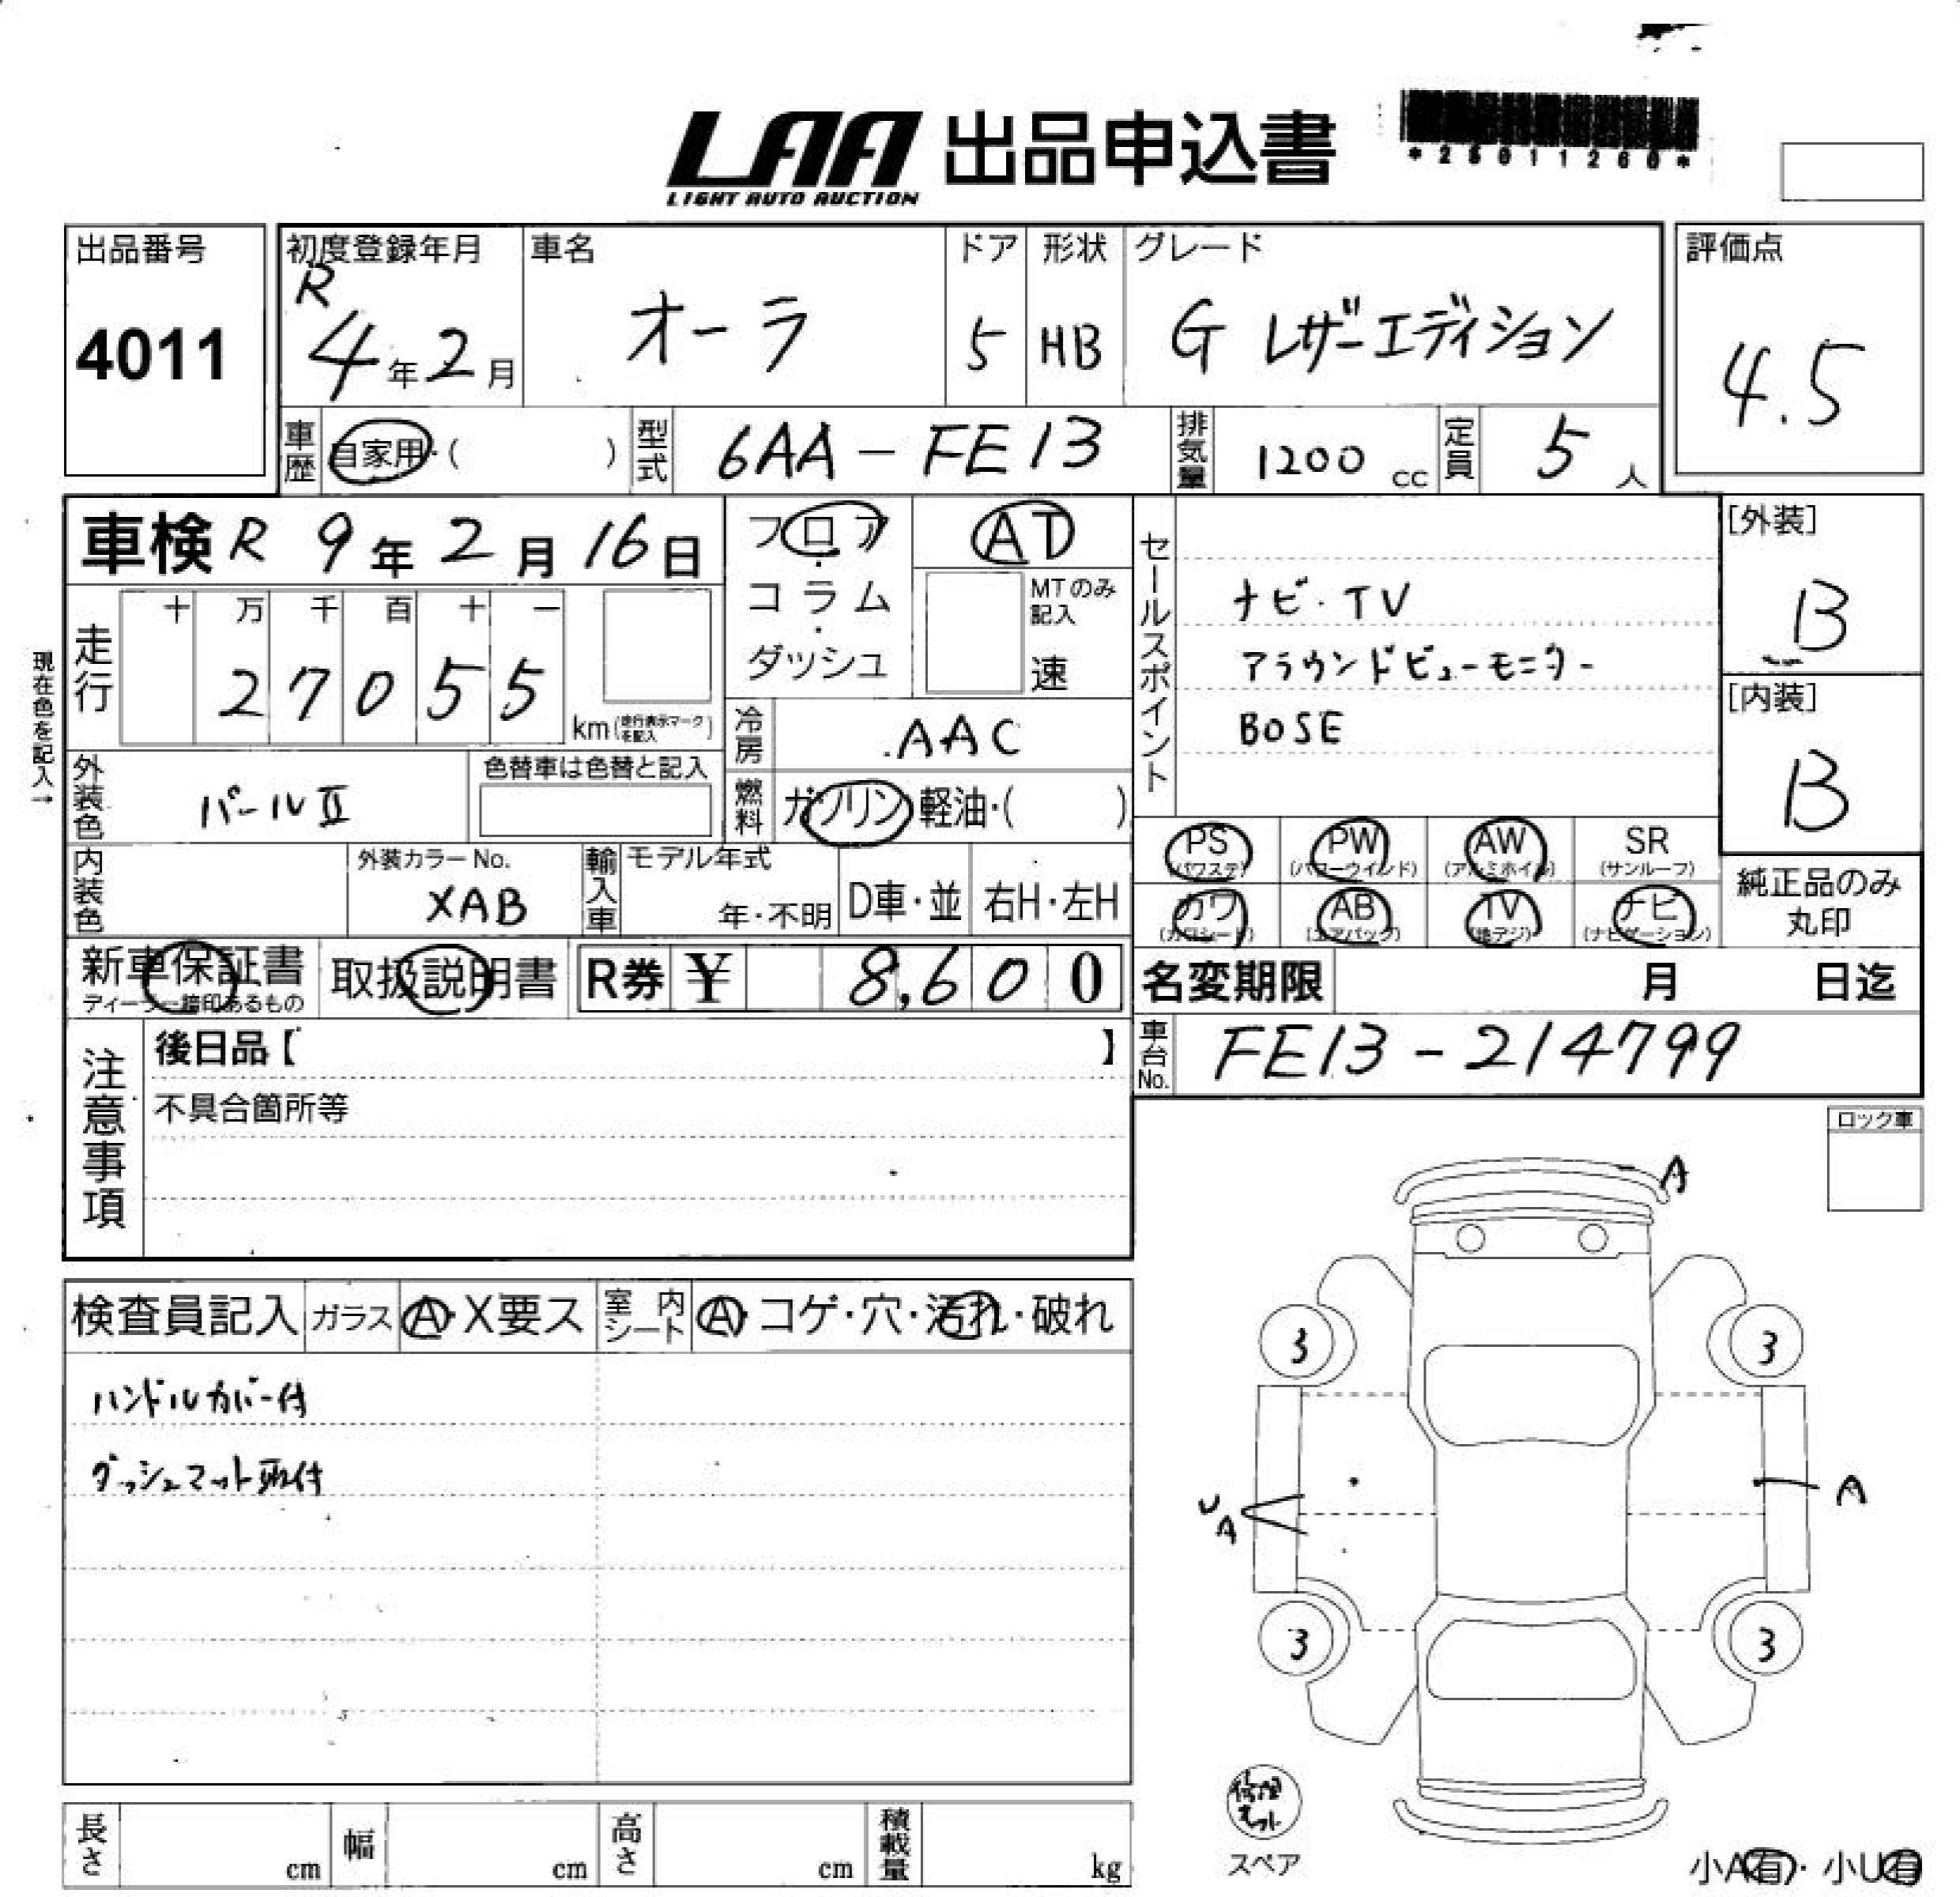 LAA 出品申込書
LIGHT AUTO AUCTION
*25011260*
出品番号
4011
初度登録年月
R
4年2月
車名
オーラ
ドア
5
形状
HB
グレード
G レザーエディション
評価点
4.5
車歴
自家用・( )
型式
6AA-FE13
排気量
1200 cc
定員
5 人
車検 R 9年2月16日
フロア・コラム・ダッシュ
AT
MTのみ記入
速
現在色を記入→
走行
十 万 千 百 十 一
27055
km (走行表示マークを記入)
冷房
AAC
外装色
パールⅡ
色替車は色替と記入
燃料
ガソリン・軽油・( )
内装色
外装カラーNo.
XAB
輸入車
モデル年式
年・不明
D車・並
右H・左H
新車保証書
ディーラー捺印あるもの
取扱説明書
R券 ¥ 8,600
セールスポイント
ナビ・TV
アラウンドビューモニター
BOSE
[外装]
B
[内装]
B
PS (パワステ)
PW (パワーウインド)
AW (アルミホイル)
SR (サンルーフ)
カワ (カワシート)
AB (エアバッグ)
TV (地デジ)
ナビ (ナビゲーション)
純正品のみ
丸印
名変期限 月 日迄
車台No.
FE13-214799
注意事項
後日品【 】
不具合箇所等
ロック車
検査員記入
ガラス
A・X要ス
室内シート
A・コゲ・穴・汚れ・破れ
ハンドルカバー付
ダッシュマット取付
A
3
3
U
A
A
3
3
修理キット
スペア
小A有・小U有
長さ cm
幅 cm
高さ cm
積載量 kg